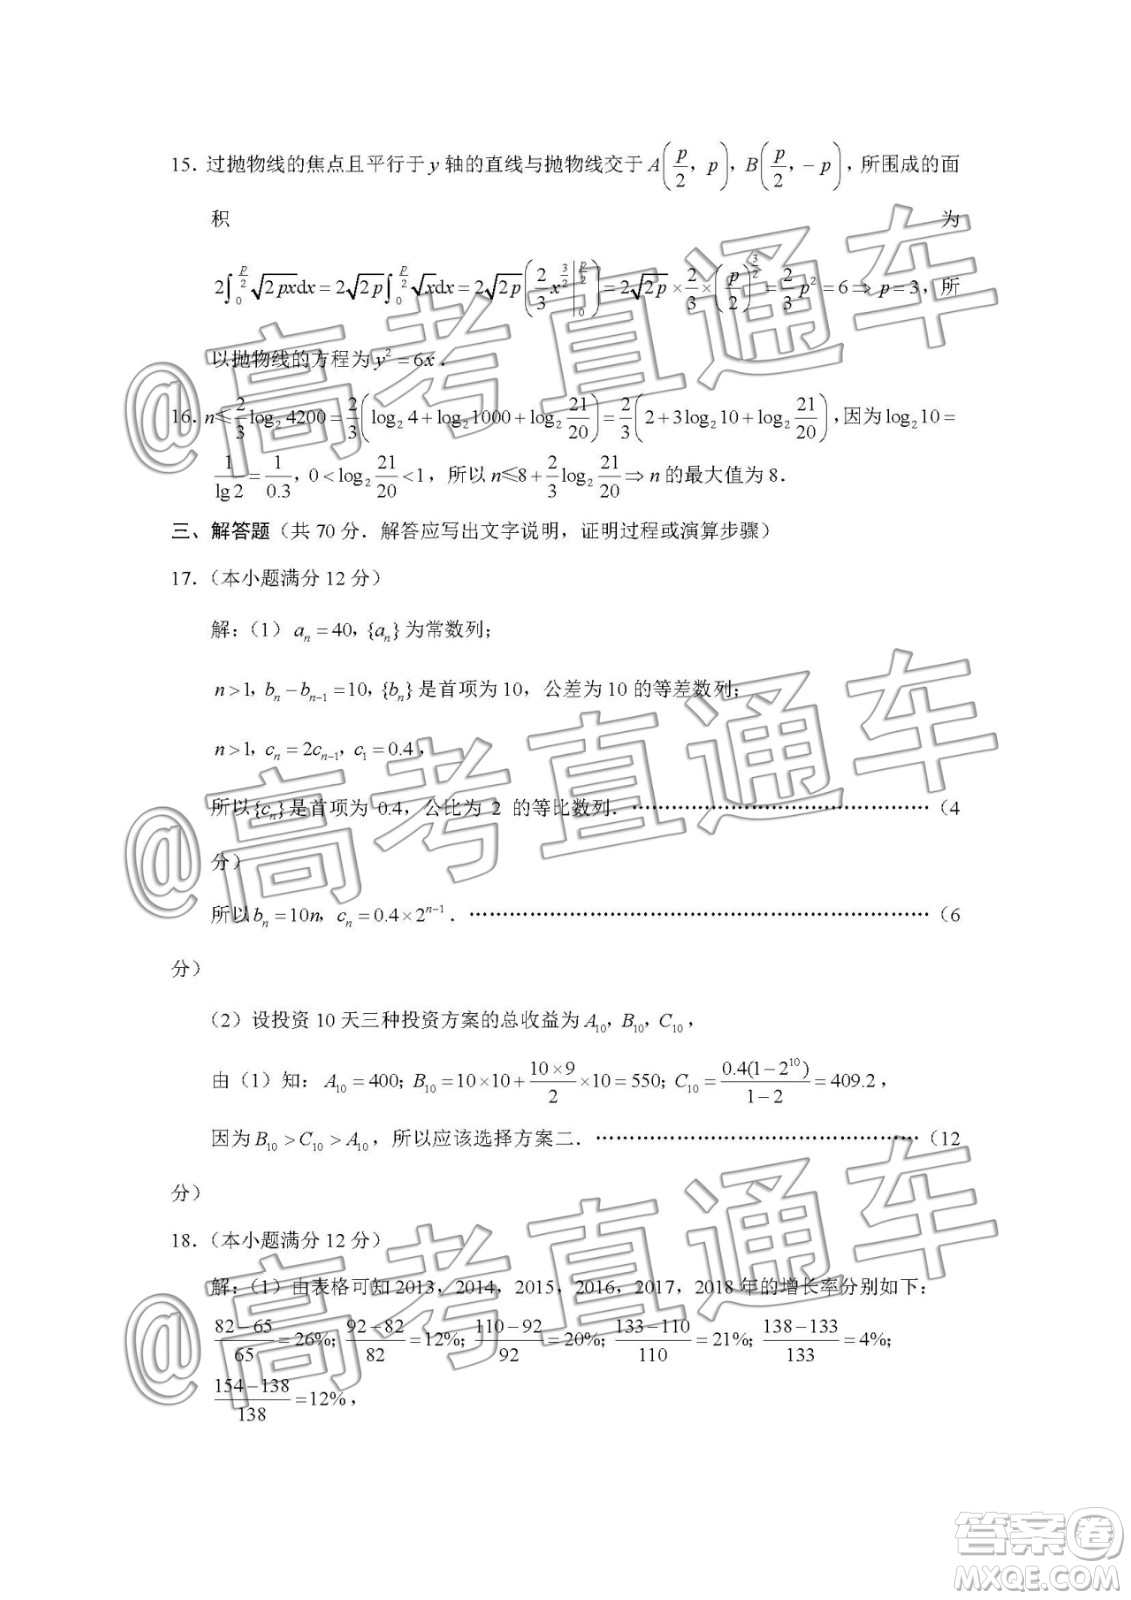 15．过抛物线的焦点且平行于 y 轴的直线与抛物线交于 A(p/2，p)，B(p/2，－p)，所围成的面
积 为
2∫₀^(p/2) √(2px)dx＝2√(2p)∫₀^(p/2) √x dx＝2√(2p)(2/3 x^(3/2)|₀^(p/2))＝2√(2p)×2/3×(p/2)^(3/2)＝2/3 p²＝6⇒p＝3，所
以抛物线的方程为 y²＝6x．
16．n≤2/3 log₂4200＝2/3(log₂4＋log₂1000＋log₂ 21/20)＝2/3(2＋3log₂10＋log₂ 21/20)，因为log₂10＝
1/lg2＝1/0.3，0＜log₂ 21/20＜1，所以 n≤8＋2/3 log₂ 21/20⇒n 的最大值为 8．
三、解答题（共 70 分．解答应写出文字说明，证明过程或演算步骤）
17．（本小题满分 12 分）
解：（1）aₙ＝40，{aₙ}为常数列；
n＞1，bₙ－bₙ₋₁＝10，{bₙ}是首项为 10，公差为 10 的等差数列；
n＞1，cₙ＝2cₙ₋₁，c₁＝0.4，
所以{cₙ}是首项为 0.4，公比为 2 的等比数列．……………………………………（4
分）
所以bₙ＝10n，cₙ＝0.4×2ⁿ⁻¹．……………………………………………………………（6
分）
（2）设投资 10 天三种投资方案的总收益为 A₁₀，B₁₀，C₁₀，
由（1）知：A₁₀＝400；B₁₀＝10×10＋(10×9)/2×10＝550；C₁₀＝0.4(1－2¹⁰)/(1－2)＝409.2，
因为B₁₀＞C₁₀＞A₁₀，所以应该选择方案二．…………………………………………（12
分）
18．（本小题满分 12 分）
解：（1）由表格可知 2013，2014，2015，2016，2017，2018 年的增长率分别如下：
(82－65)/65＝26%；(92－82)/82＝12%；(110－92)/92＝20%；(133－110)/110＝21%；(138－133)/133＝4%；
(154－138)/138＝12%，
@高考直通车
@高考直通车
@高考直通车
答案卷
MXQE.COM